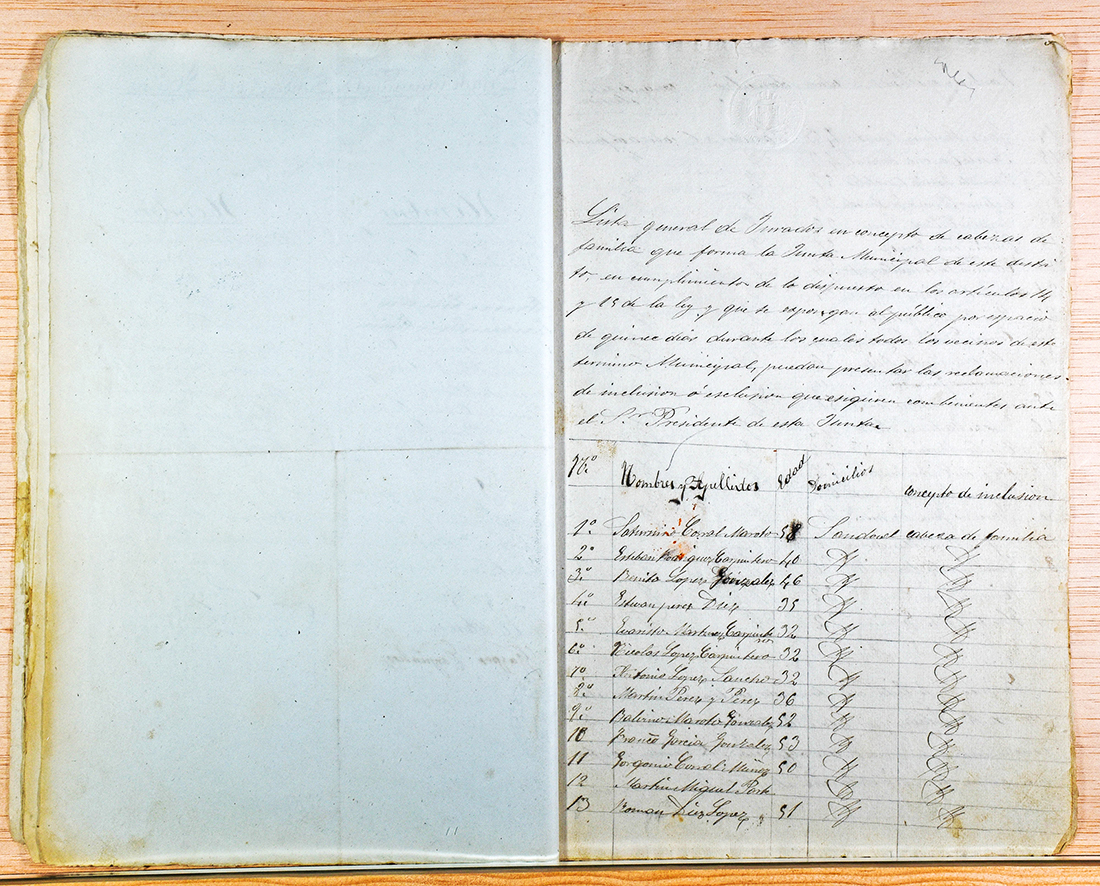 Lista general de Jurados en concepto de cabezas de
familia que forma la Junta Municipal de este distri
to, en cumplimiento de lo dispuesto en los artículos 14
y 15 de la ley y que se expongan al público por espacio
de quince dias durante los cuales todos los vecinos de este
termino Municipal, puedan presentar las reclamaciones
de inclusion ó esclusion que esigieren combenientes ante
el Sr Presidente de esta Junta
Nº. Nombres y Apellidos Edad Domicilios concepto de inclusion
1º Saturnino Corral Maroto 58 Sandoval cabeza de familia
2º Esteban Carpintero 40
3º Benito Lopez Gonzalez 46
4º Estevan perez Diez 35
5º Evaristo Martinez Carpintero 32
6º Nicolas Lopez Carpintero 32
7º Antonio Lopez Sancho 32
8º Martin Perez y Perez 36
9º Maroto Gonzalez 52
10 Franco Garcia Gonzalez 53
11 Gorgonio Corral Muñoz 50
12 Martin Miguel
13 Roman Diez Lopez 51
11